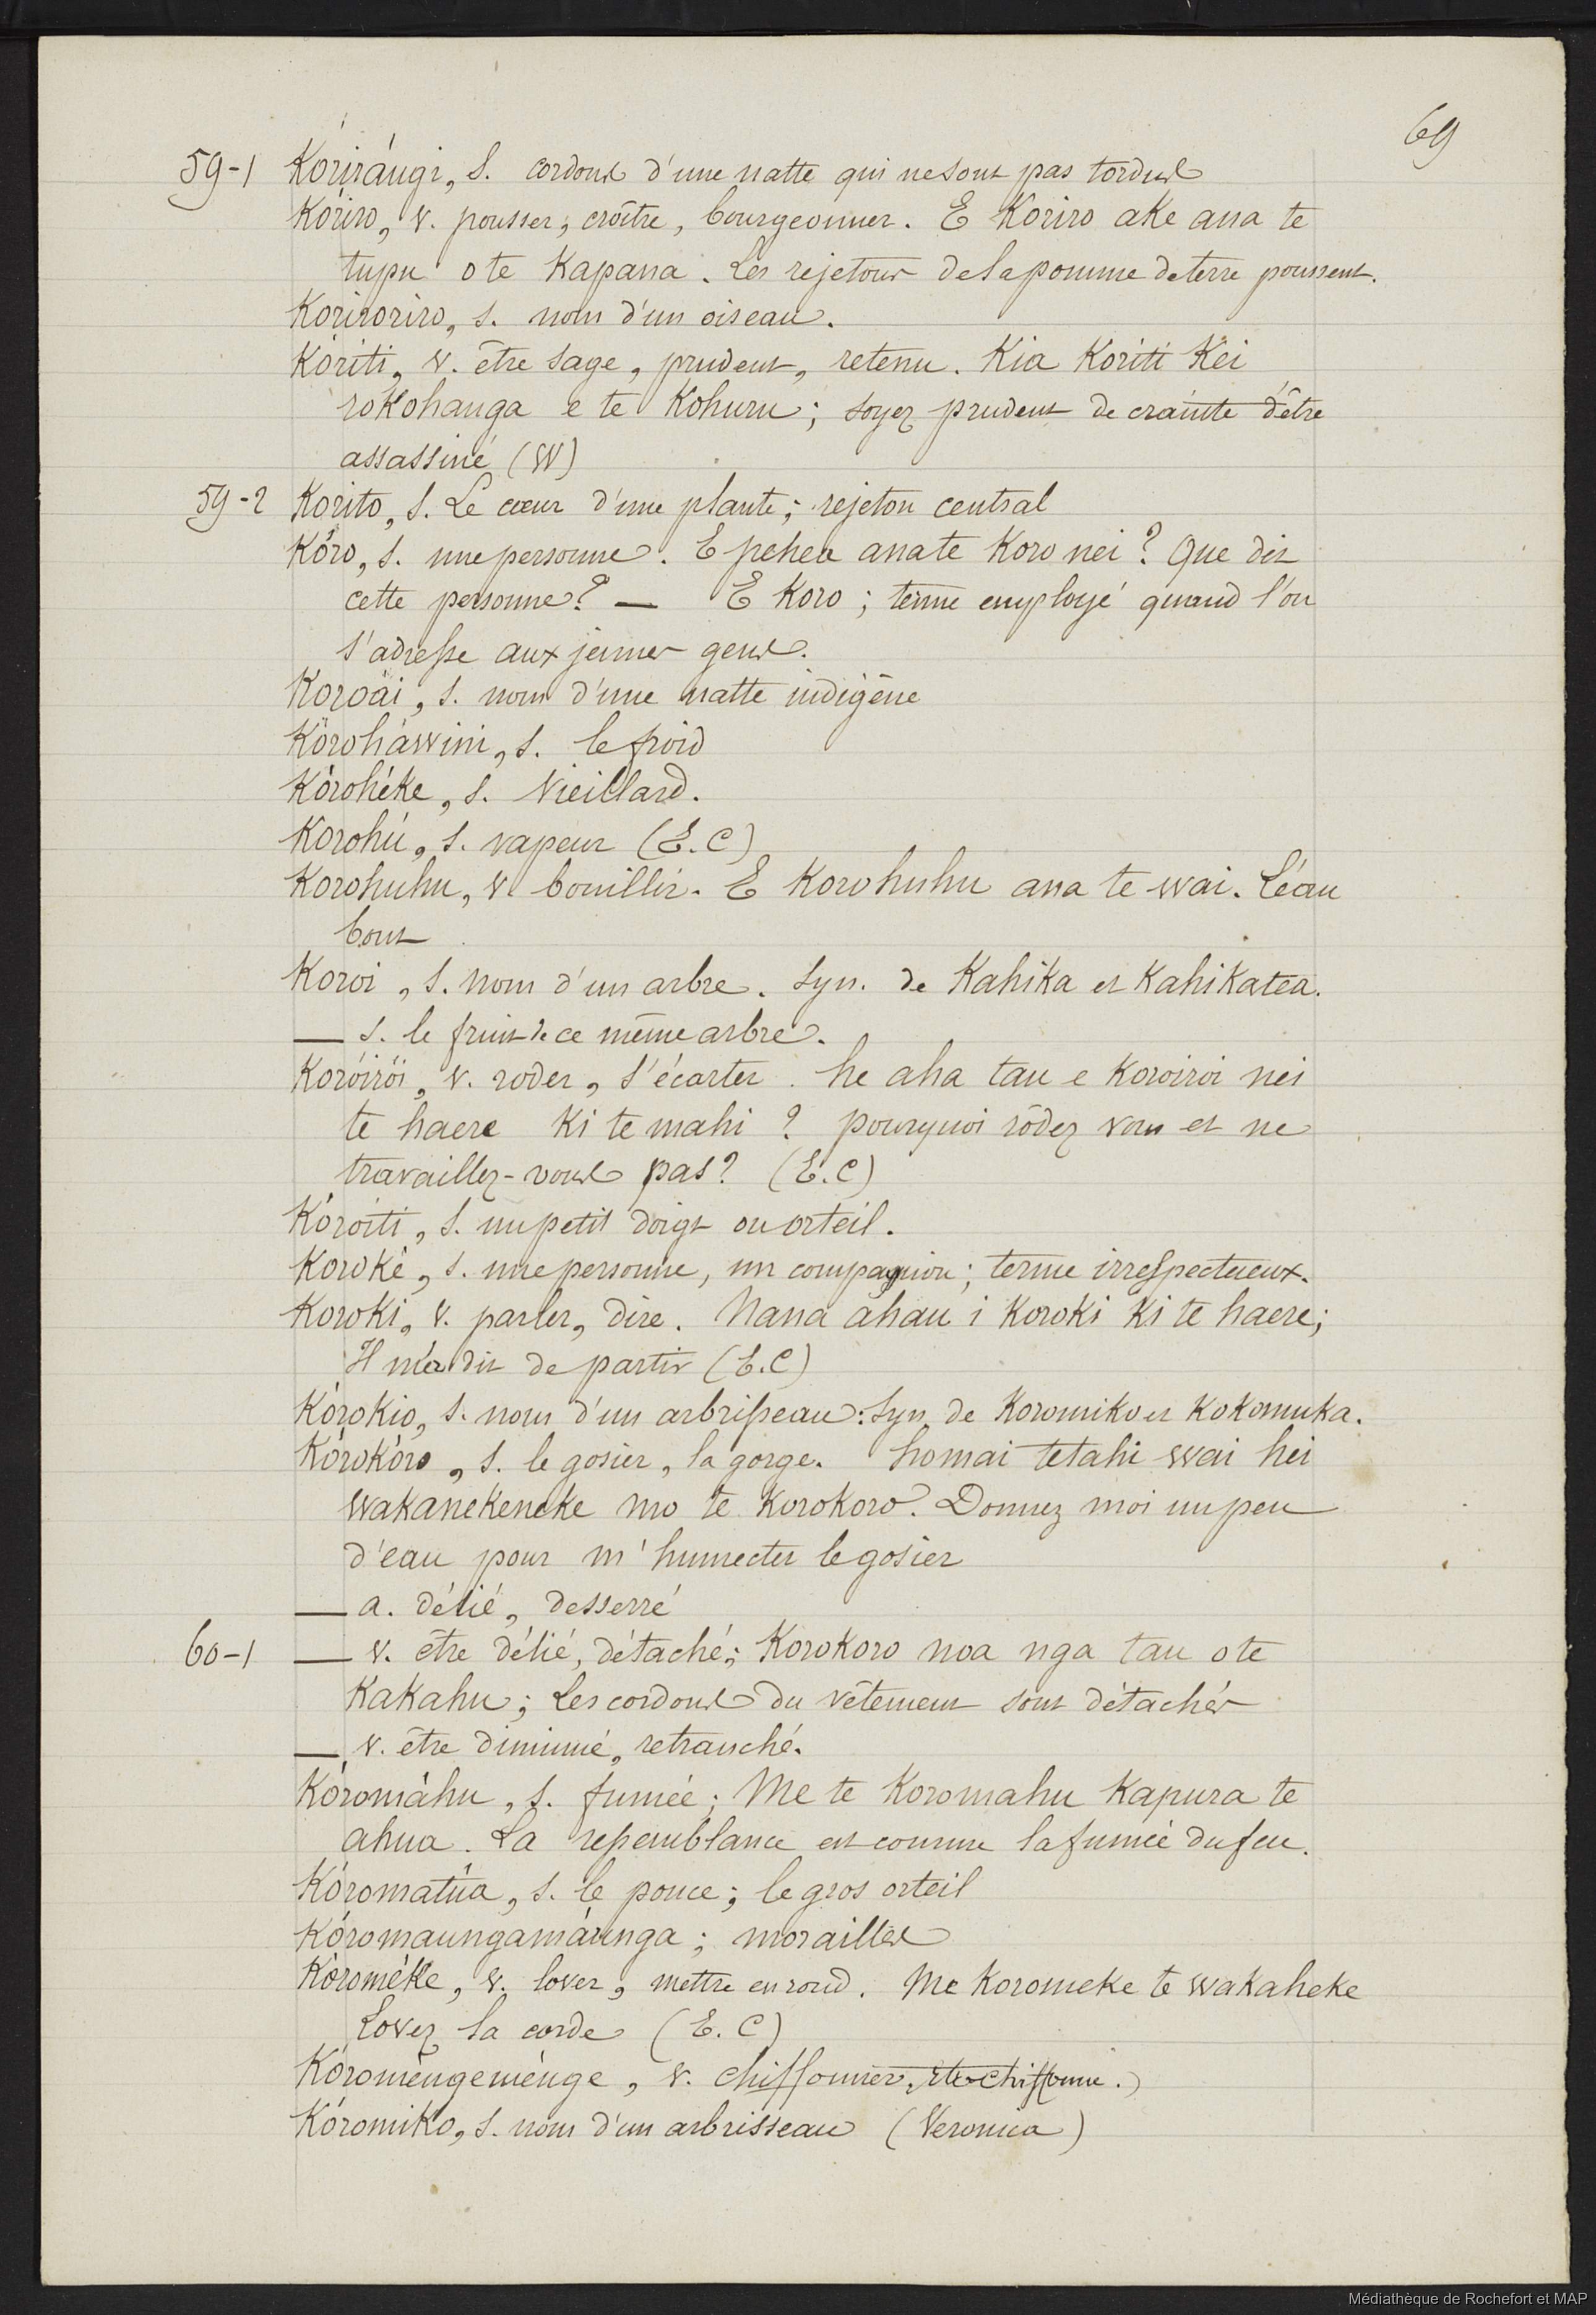 69
59-1 Kórirángi, s. cordons d'une natte qui ne sont pas tordus
Kóriro, v. pousser, croître, bourgeonner. E Koriro ake ana te
tupu o te Kapana. Les rejetons de la pomme de terre poussent.
Kóriroriro, s. nom d'un oiseau.
Kóriti, v. être sage, prudent, retenu. Kia Koriti Kei
rokohanga e te Kohuru; soyez prudent de crainte d'être
assassiné (W)
59-2 Korito, s. Le cœur d'une plante; rejeton central
Kóro, s. une personne. E pehea ana te Koro nei? Que dit
cette personne? — E Koro; terme employé quand l'on
s'adresse aux jeunes gens.
Koroäi, s. nom d'une natte indigène
Kóroháwini, s. le froid
Kórohéke, s. Vieillard.
Korohú, s. vapeur (E.C)
Korohuhu, v. bouillir. E Korohuhu ana te wai. L'eau
bout
Koroi, s. nom d'un arbre. Syn. de Kahika et Kahikatea.
— s. le fruit de ce même arbre.
Koróirói, v. roder, s'écarter. he aha tau e Koroiroi nei
te haere Ki te mahi? pourquoi rôdez vous et ne
travaillez-vous pas? (E.C)
Kóroiti, s. un petit doigt ou orteil.
Koroké, s. une personne, un compagnion; terme irrespectueux.
Koroki, v. parler, dire. Nana ahau i Koroki Ki te haere;
Il m'a dit de partir (E.C)
Kórokio, s. nom d'un arbrisseau: Syn de Koromiko et Kokomuka.
Kórokóro, s. le gosier, la gorge. homai tetahi wai hei
wakanekeneke mo te Korokoro. Donnez moi un peu
d'eau pour m'humecter le gosier
— a. délié, desserré
60-1 — v. être délié, détaché; Korokoro noa nga tau o te
Kakahu; Les cordons du vêtement sont détachés
— v. être diminué, retranché.
Kóromáhu, s. fumée; Me te Koromahu Kapura te
ahua. La ressemblance est comme la fumée du feu.
Kóromatúa, s. le pouce; le gros orteil
Kóromaungamáunga; morailles
Kóroméke, v. lover, mettre en rond. Me Koromeke te wakaheke
Lovez la corde (E.C)
Kóroméngeménge, v. chiffonner, être chiffonné.
Kóromiko, s. nom d'un arbrisseau (Veronica)
Médiathèque de Rochefort et MAP